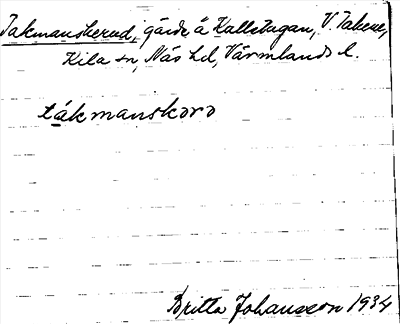 Takmanskerud, gärde å Kallskagan, V. Takene,
Kila sn, Näs hd, Värmlands l.
tákmanskərə
Britta Johansson 1934